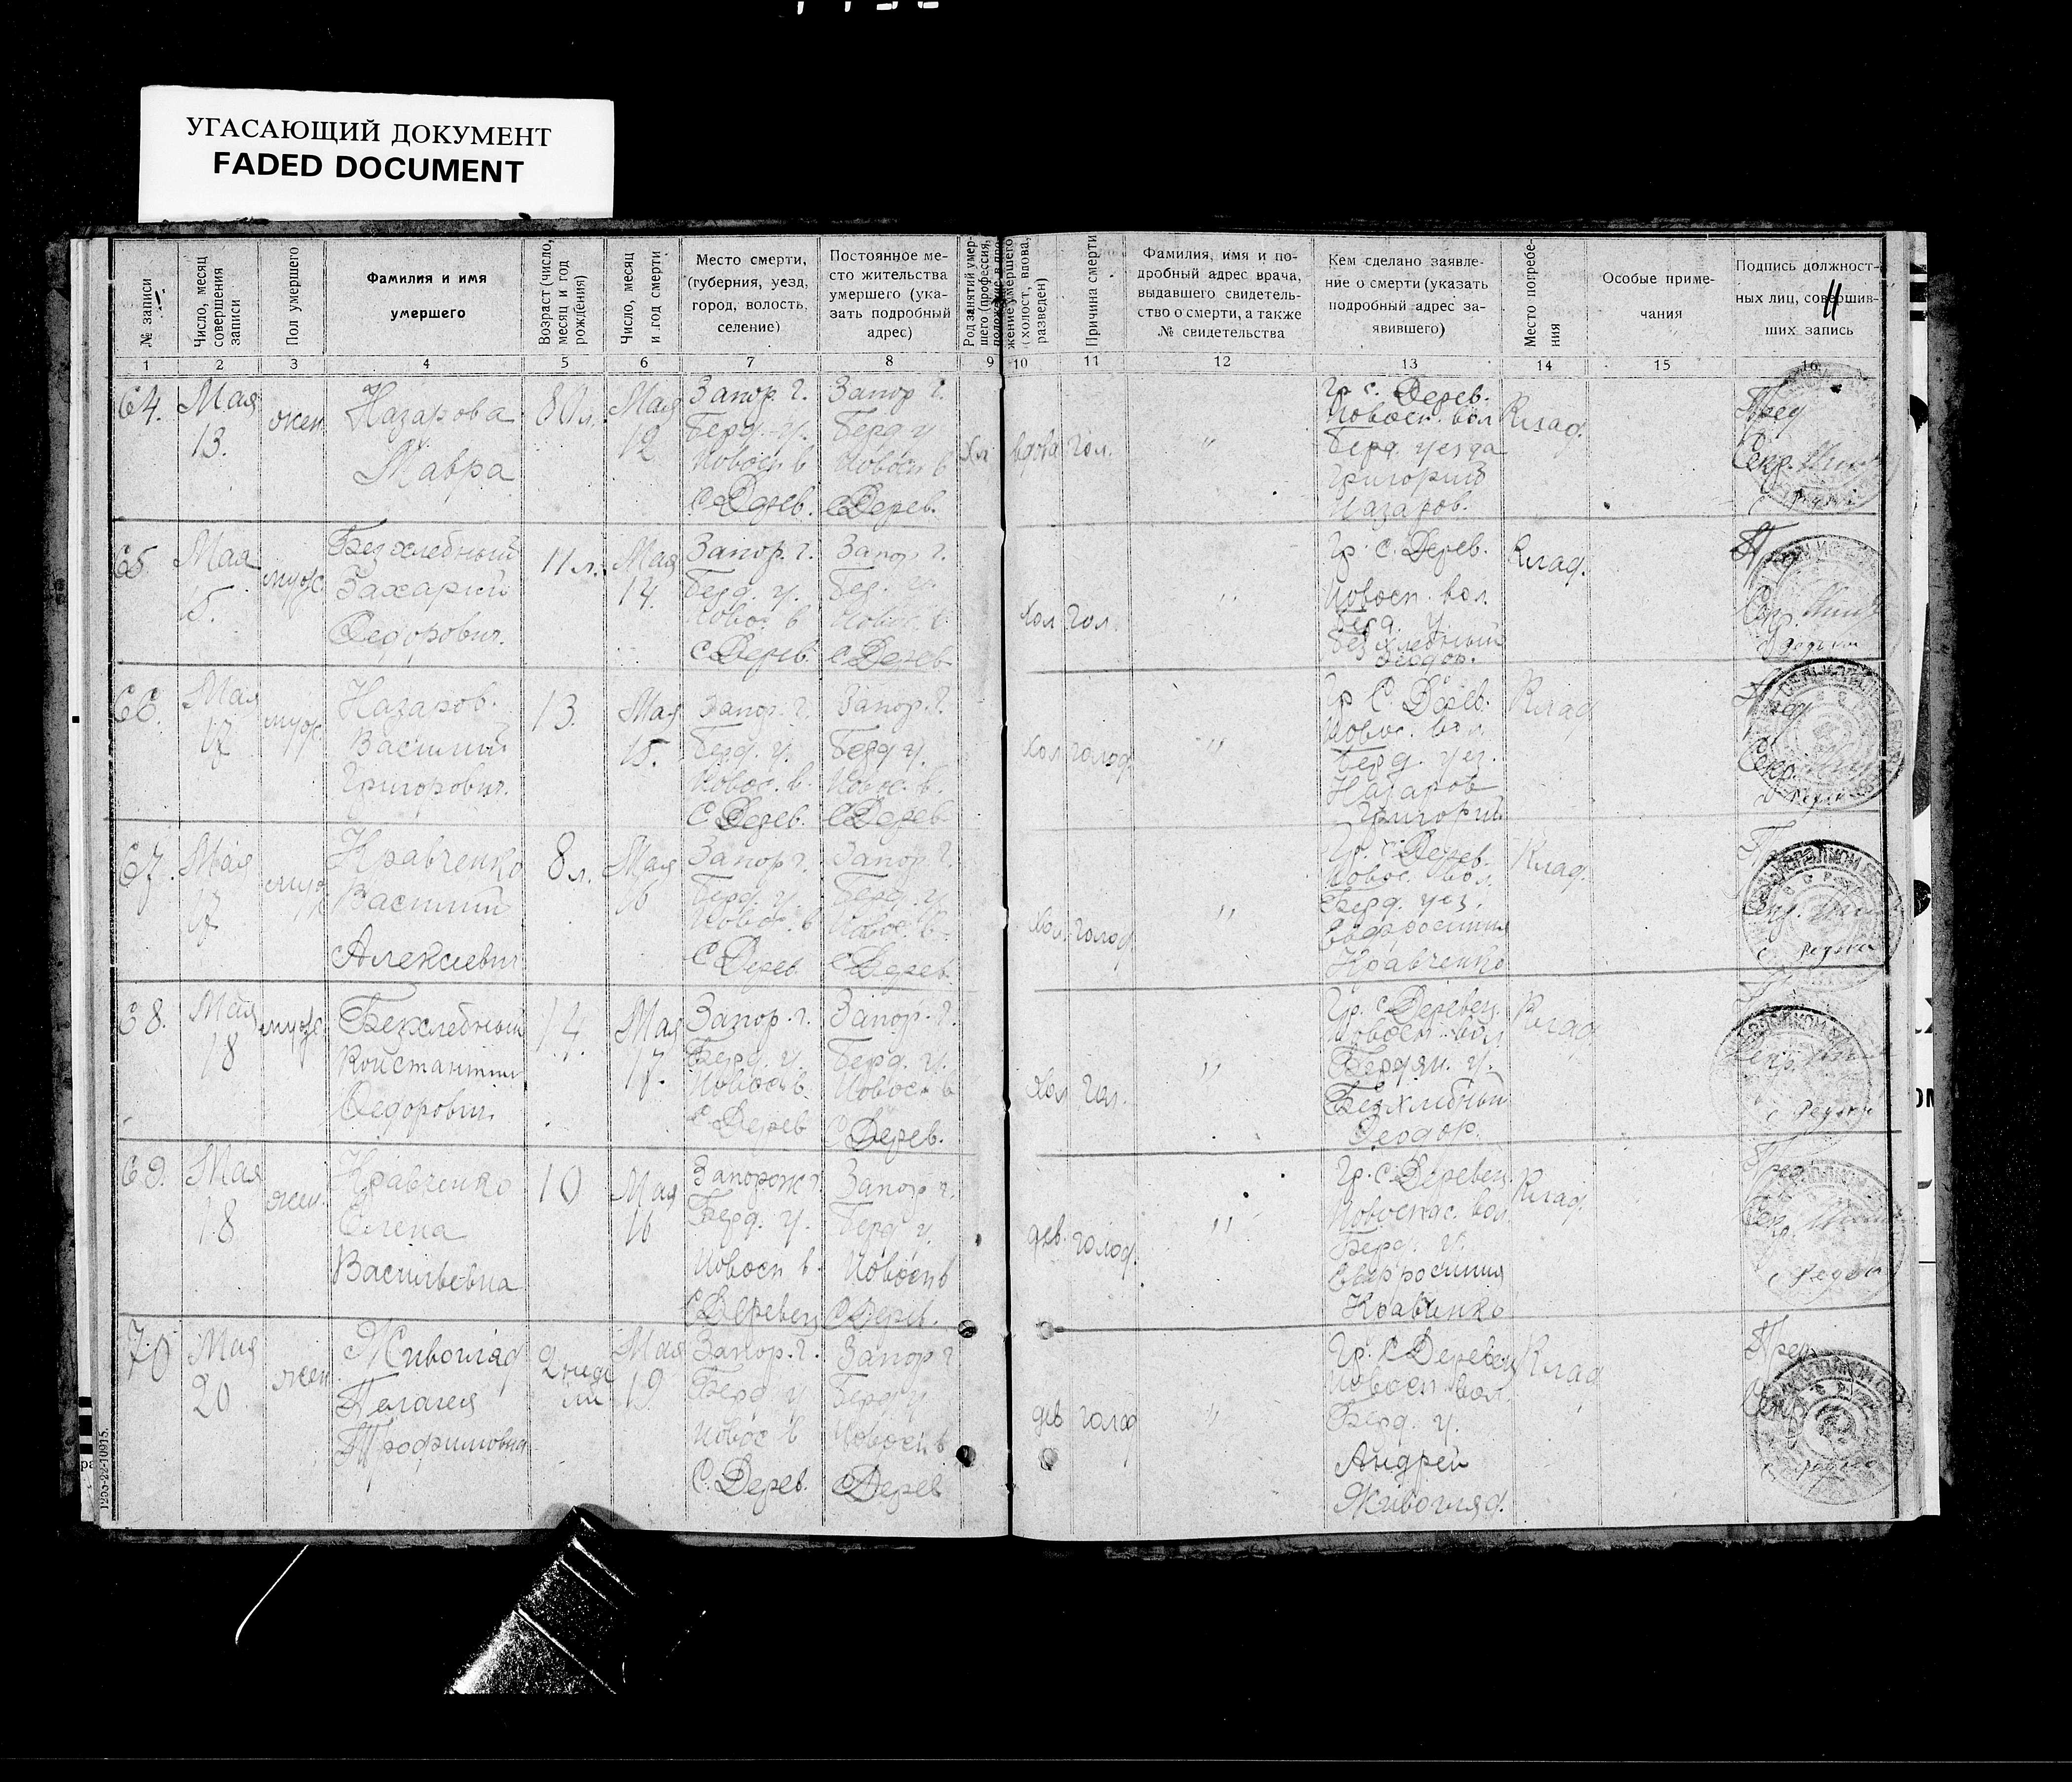 УГАСАЮЩИЙ ДОКУМЕНТ
FADED DOCUMENT
№ записи
Число, месяц
совершения
записи
Пол умершего
Фамилия и имя
умершего
Возраст (число,
месяц и год
рождения)
Число, месяц
и год смерти
Место смерти,
(губерния, уезд,
город, волость,
селение)
Постоянное ме-
сто жительства
умершего (ука-
зать подробный
адрес)
Род занятий умер-
шего (профессия,
жение умершего
(холост, вдова,
разведен)
Причина смерти
Фамилия, имя и по-
дробный адрес врача,
выдавшего свидетель-
ство о смерти, а также
№ свидетельства
Кем сделано заявле-
ние о смерти (указать
подробный адрес за-
явившего)
Место погребе-
ния
Особые приме-
чания
Подпись должност-
ных лиц, совершив-
ших запись
11
1 2 3 4 5 6 7 8 9 10 11 12 13 14 15 16
64.
Мая
13.
жен.
Назарова
Мавра
80 л.
Мая
12
Запор. г.
Берд. у.
Новосп в
с Дерев.
Запор г.
Берд у
Новосп в
с Дерев.
вдова
гол.
"
Гр с. Дерев.
Новосп. вол
Берд. уезда
Григорий
Назаров.
Клад.
Пред
Секр.
65
Мая
15.
муж.
Безхлебный
Захарий
Федорович.
11 л.
Мая
14.
Запор. г.
Берд. у.
Новос. в
с Дерев.
Запор. г.
Бер. у.
Новос. в.
с Дерев.
хол
гол.
"
Гр. с. Дерев.
Новосп. вол.
Берд. у.
Безхлебный
Феодор.
Клад.
66.
Мая
17
муж.
Назаров.
Василий
Григорович.
13.
Мая
15.
Запор. г.
Берд. у.
Новос. в.
с Дерев.
Запор. г.
Берд у.
Новос. в.
с Дерев.
хол
голод.
"
Гр с. Дерев.
Новос. вол.
Берд. уез.
Назаров
Григорий
Клад
67.
Мая
17
муж
Кравченко
Василий
Алексиевич
8 л.
Мая
16
Запор г.
Берд. у.
Новос. в
с Дерев
Запор. г.
Берд. у
Новос. в.
с Дерев.
хол.
голод
"
Гр. с Дерев.
Новос. вол.
Берд. уез.
Кравченко
Клад.
68.
Мая
18
муж.
Безхлебный
Константин
Федорович.
14.
Мая
17.
Запор. г.
Берд. у.
Новосп в.
с Дерев
Запор. г.
Берд. у.
Новосп в
с Дерев.
хол
гол.
"
Гр. с Деревец
Новосп. вол
Бердян. у.
Безхлебный
Феодор.
Клад
69.
Мая
18
жен.
Кравченко
Елена
Васильевна
10
Мая
16
Запорож г
Берд. у.
Новосп в.
с Деревец
Запор г.
Берд у.
Новосп в
с Дерев.
дев.
голод.
"
Гр. с. Деревец
Новоспас. вол
Берд. у.
Кравченко
Клад.
70
Мая
20
жен
Живогляд
Пелагея
Трофимовна
2 неде
ли
Мая
19.
Запор. г.
Берд у
Новос в
с. Дерев.
Запор г
Берд у
Новосп в
с Дерев
дев
голод
"
Гр. с Деревец
Новосп. вол.
Берд. у.
Андрей
Живогляд.
Клад
Пред
Секр
1203-22-10915.